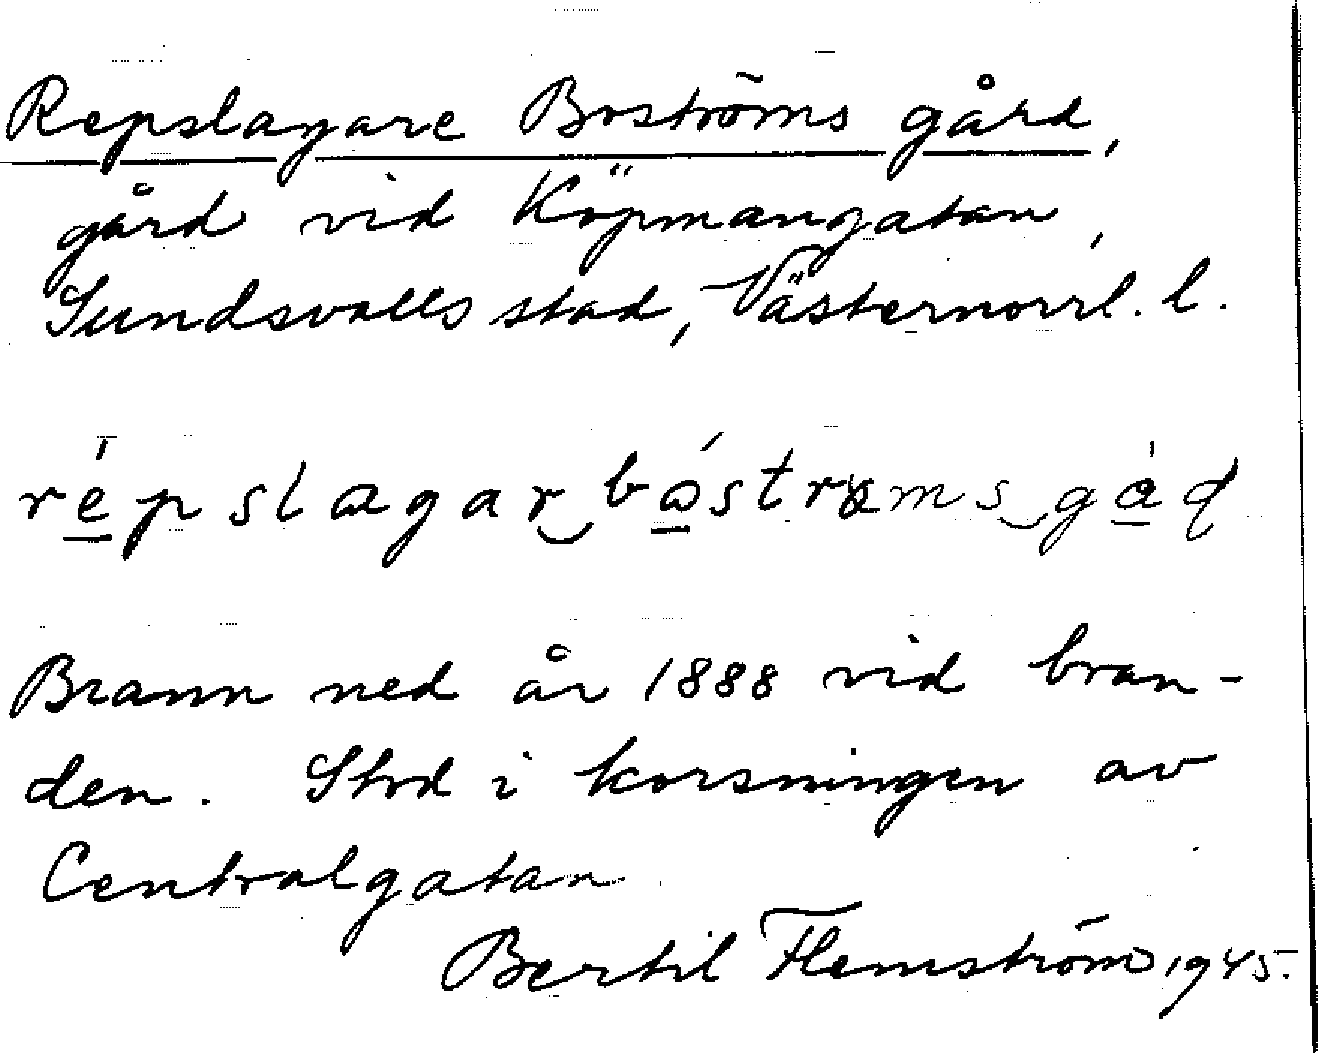 Repslagare Boströms gård,
gård vid Köpmangatan,
Sundsvalls stad, Västernorrl. l.
répslagar‿båstrᴔms‿gåd
Brann ned år 1888 vid bran-
den. Stod i korsningen av
Centralgatan
Bertil Flemström 1945.